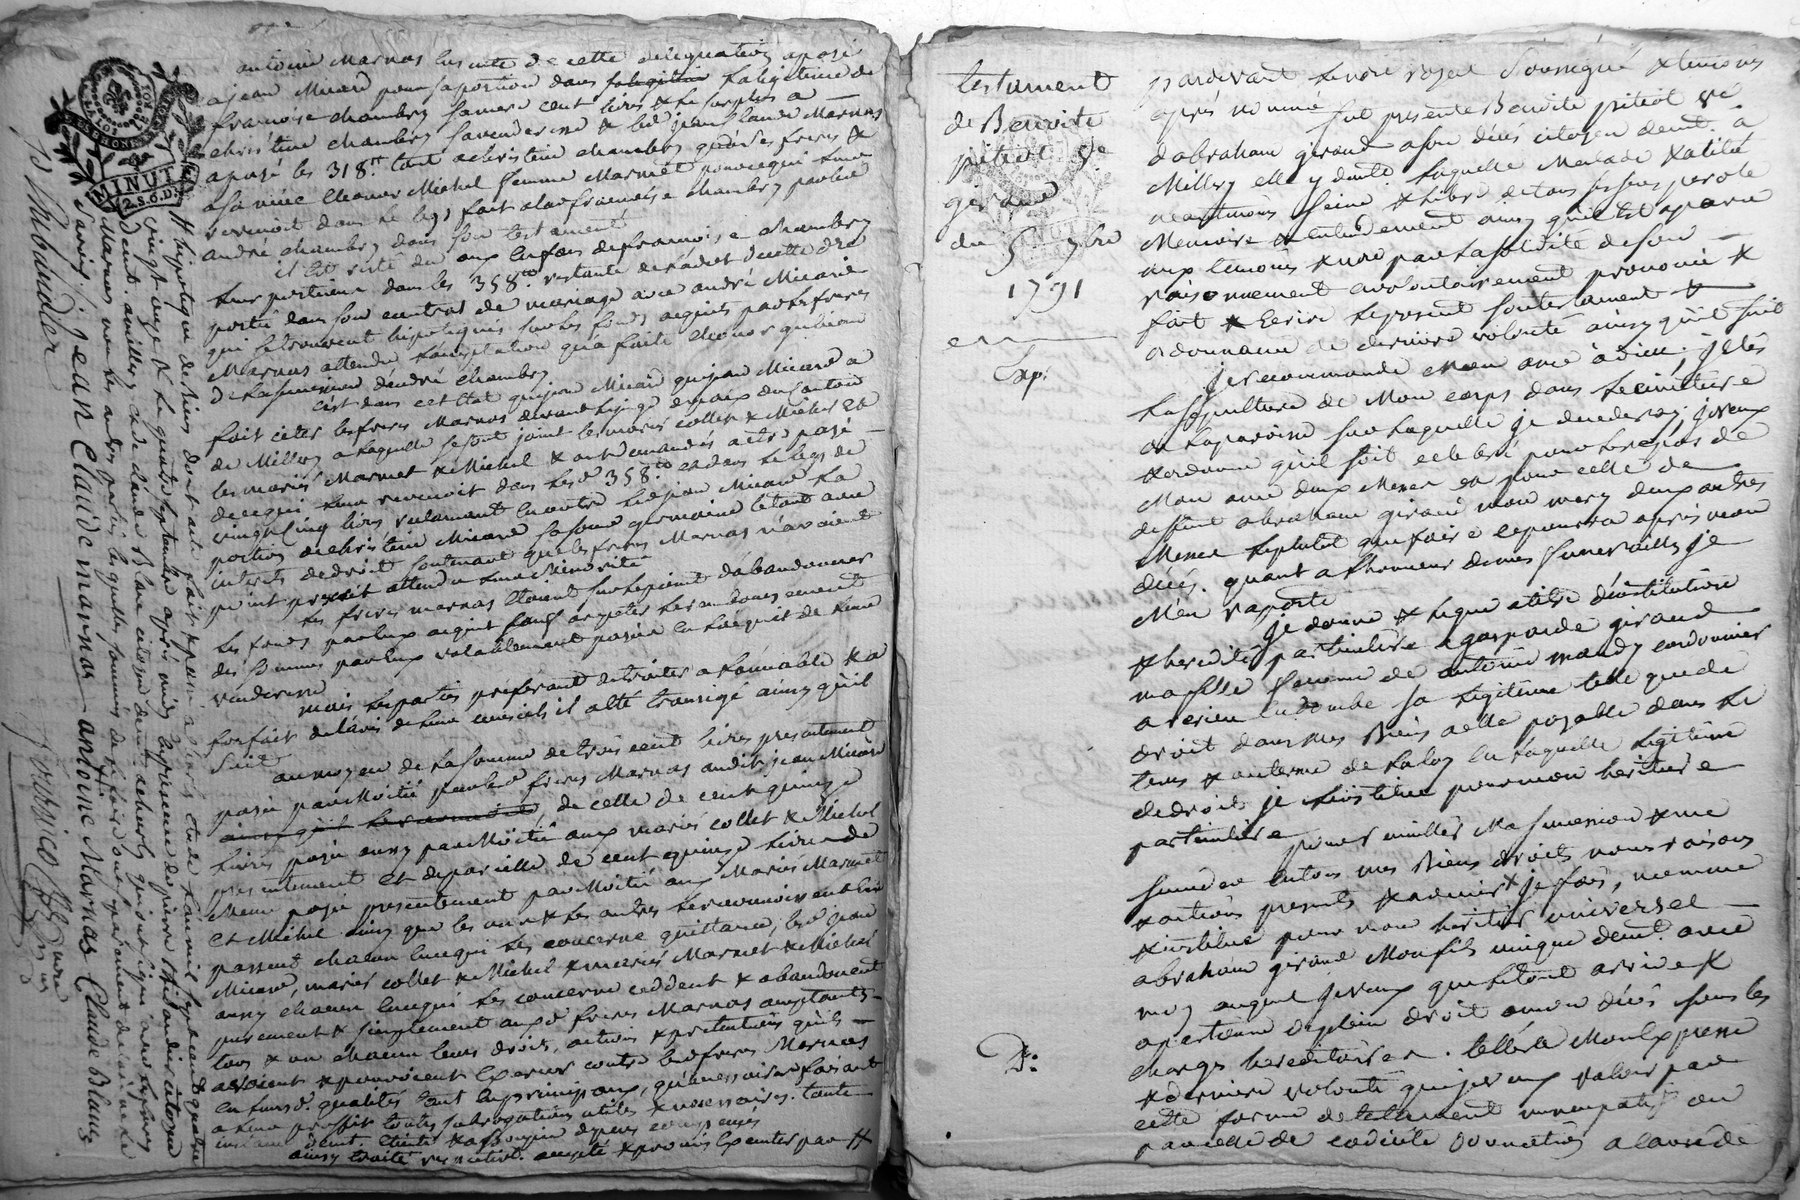 antoine Marnas ensuite de cette délégation a payé
a jean Micard pour sa portion dans la légitime de
françoise chambry sa mere cent livres & le surplus a
christine chambry sa venderesse & led. jean Claude Marnas
a payé les 318 tt. tant a christine chambry qu'a ses freres &
a sa niéce Eleonor Michel femme Marmet pour ce qui leur
revenoit dans le legs fait a lad. françoise chambry par led.
andré chambry dans son testament
il est resté du aux enfans de françoise chambry
leur portion dans les 358 tt. restante de la dot a cette der
portée dans son contrat de mariage avec andré Micard
qui se trouvent hipotequés sur les fonds acquis par les freres
Marnas attendu l'acceptation qu'a faite Eleonor
de la succession d'andré chambry
c'est dans cet état que jean Micard a
fait citer les freres Marnas devant le juge de paix du canton
de Millery a laquelle se sont joint les mariés collet & Michel &
les mariés Marmet & Michel & ont demandés a etre payé
de ce qui leur revenoit dans lesd. 358 tt. & dans le legs de
vingt cinq livres reclamant en outre led. jean Micard la
portion de christine Micard sa soeur germaine le tout avec
interets de droit soutenant que les freres Marnas n'avoient
point prescrit attendu leur Minorité
les freres marnas étoient sur le point d'abandonner
les fonds par eux acquis sauf a repeter
des sommes par eux valablement payée en l'acquit de leur
venderesse
mais les parties préférant de traiter a l'amiable & a
forfait de l'avis de leur conseils il a été transigé ainsy qu'il
suit
au moyen de la somme de trois cent livres presentement
payée par Moitié par lesd. freres Marnas audit jean Micard
ainsy qu'il le reconnoit, de celle de cent quinze
livres payée aussy par Moitié aux mariés collet & Michel
presentement et de pareille de cent quinze livres de
meme payée presentement par Moitié aux Mariés Marmet
et Michel ainsy que les uns & les autres le reconnoissent &
passent chacun en ce qui les concerne quittance, led. jean
Micard, mariés collet & Michel & mariés Marmet & Michel
aussy chacun en ce qui les concerne ceddent & abandonnent
purement & simplement auxd. freres Marnas acceptants
tous & un chacun leurs droits, actions & pretentions qu'ils
avoient & pouvoient exercer contre lesd. freres Marnas
en leurs d. qualités tant en principaux, qu'accessoires faisant
a leur proffit toutes subrogations utiles & necessaires. toute
instance demt. éteinte & assoupie depens compensés
ainsy traité respectivt. accepté & promis executer par #
# hipoteque de Biens dont acte fait & passé a
vingt onze & le quatre septembre après midy en presence de pierre thibaudier citoyen
demt. a millery & de claude Blanc citoyen demt. a charly qui ont signé avec les freres
Marnas non les autres parties lesquelles sommés de le faire ont separement declaré ne le
savoir.
jean Claude marnas antoine Marnas Claude Blanc
P thibaudier
MINUT
2.S.6.D.
testament
de Benoite
pitiot ve
giraud
du 5 7bre
1791
Exp.
D:
pardevant le nore. royal soussigné & temoins
après nommé fut presente Benoite pitiot ve
d'abraham giraud a son décés citoyen demt. a
Millery elle y demte. laquelle Malade & alitée
neantmoins seine & libre de tous ses sens parole
Memoire & entendement ainsy qu'il est aparu
aux temoins & nore par la solidité de son
raisonnement a volontairement prononcé &
fait & Ecrire le present son testament &
ordonnance de derniere volonté ainsy qu'il suit
je recommande Mon ame à dieu; j'elis
la sepulture de Mon corps dans le cimetiere
de la paroisse sur laquelle je decederay; je veux
& ordonne qu'il soit celebré pour le repos de
Mon ame deux Messes & pour celle de
deffunt abraham giraud mon mary deux autres
Messes le plutot que faire ce pourra après mon
décés. quant a l'honneur de mes funerailles je
M'en raporte
je donne & legue a titre d'institution
& heredité particuliere a gasparde giraud
ma fille femme de antoine mandy cordonnier
a la légitime telle que de
droit dans mes Biens a elle payable dans le
tems & au terme de la loy en laquelle legitime
de droit je l'institue pour mon heritiere
particuliere
pour ceuillir Ma succession & me
succeder en tous mes Biens droits noms raisons
& actions presents & avenir je fais, nomme
& institue pour mon heritier universel
abraham giraud Mon fils unique demt. avec
moy auquel je veux que le tout arrive &
apartienne de plein droit a mon décés sous les
charges hereditaires. telle est Mon Expresse
& derniere volonté que je veux valoir par
cette forme de testament nuncupatif ou
par celle de codicile donnation a cause de